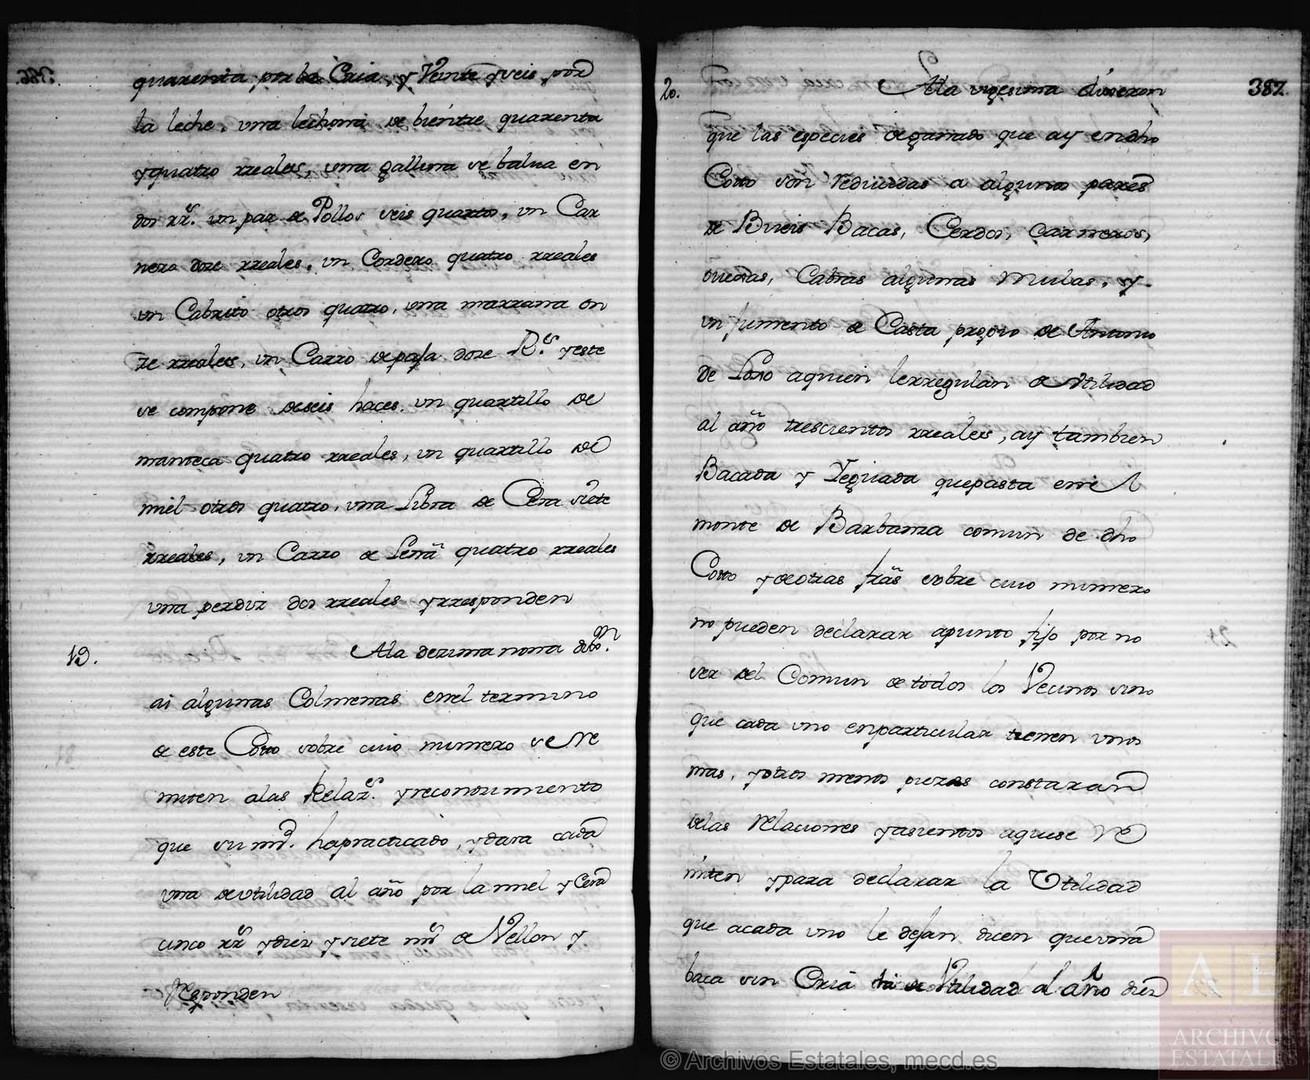 quarenta por la Cria, y Veinte y seis por
la leche, una lechona de bientre quarenta
y quatro rreales, una gallina se balua en
dos rr.s un par de Pollos seis quartos, un Car
nero doze rreales, un Cordero quatro rreales
un Cabrito otros quatro, una marrana on
ze rreales, un Carro de paja doze R.s y este
se compone de seis haces, un quartillo de
manteca quatro rreales, un quartillo de
miel otros quatro, una Libra de Cera siete
rreales, un Carro de Leña quatro rreales
una perdiz dos rreales y rresponden
19. Ala dezima nona
ai algunas Colmenas en el termino
de este Coto sobre cuio numero se Re
miten alas Relaz.s y reconocimiento
que su md. ha practicado, y dara cada
una de utilidad al año por la miel y Cera
cinco rr.s y diez y siete mrs de Vellon y
rresponden
20. Ala vigesima dixeron 387.
que las especies de ganado que ay en dho
Coto son reducidas a algunos pares
de Bueis Bacas, Cerdos, Carneros,
ouejas, Cabras algunas Mulas, y
un Jumento de Casta propio de Antonio
De aquien le rregulan de utilidad
al año trescientos rreales, ay tambien
Bacada y Yeguada que pasta en el
monte de Barbanza comun de dho
Coto y de otras sobre cuio numero
no pueden declarar apunto fijo por no
ser del Comun de todos los Vecinos sino
que cada uno en particular tienen unos
mas, y otros menos piezas constaran
delas relaciones y asientos aque se Re
miten y para declarar la Utilidad
que acada uno le dejan dicen que una
baca sin Cria da de Utilidad al Año diez
366.
18
21
AE
ARCHIVOS
ESTATALES
© Archivos Estatales, mecd.es